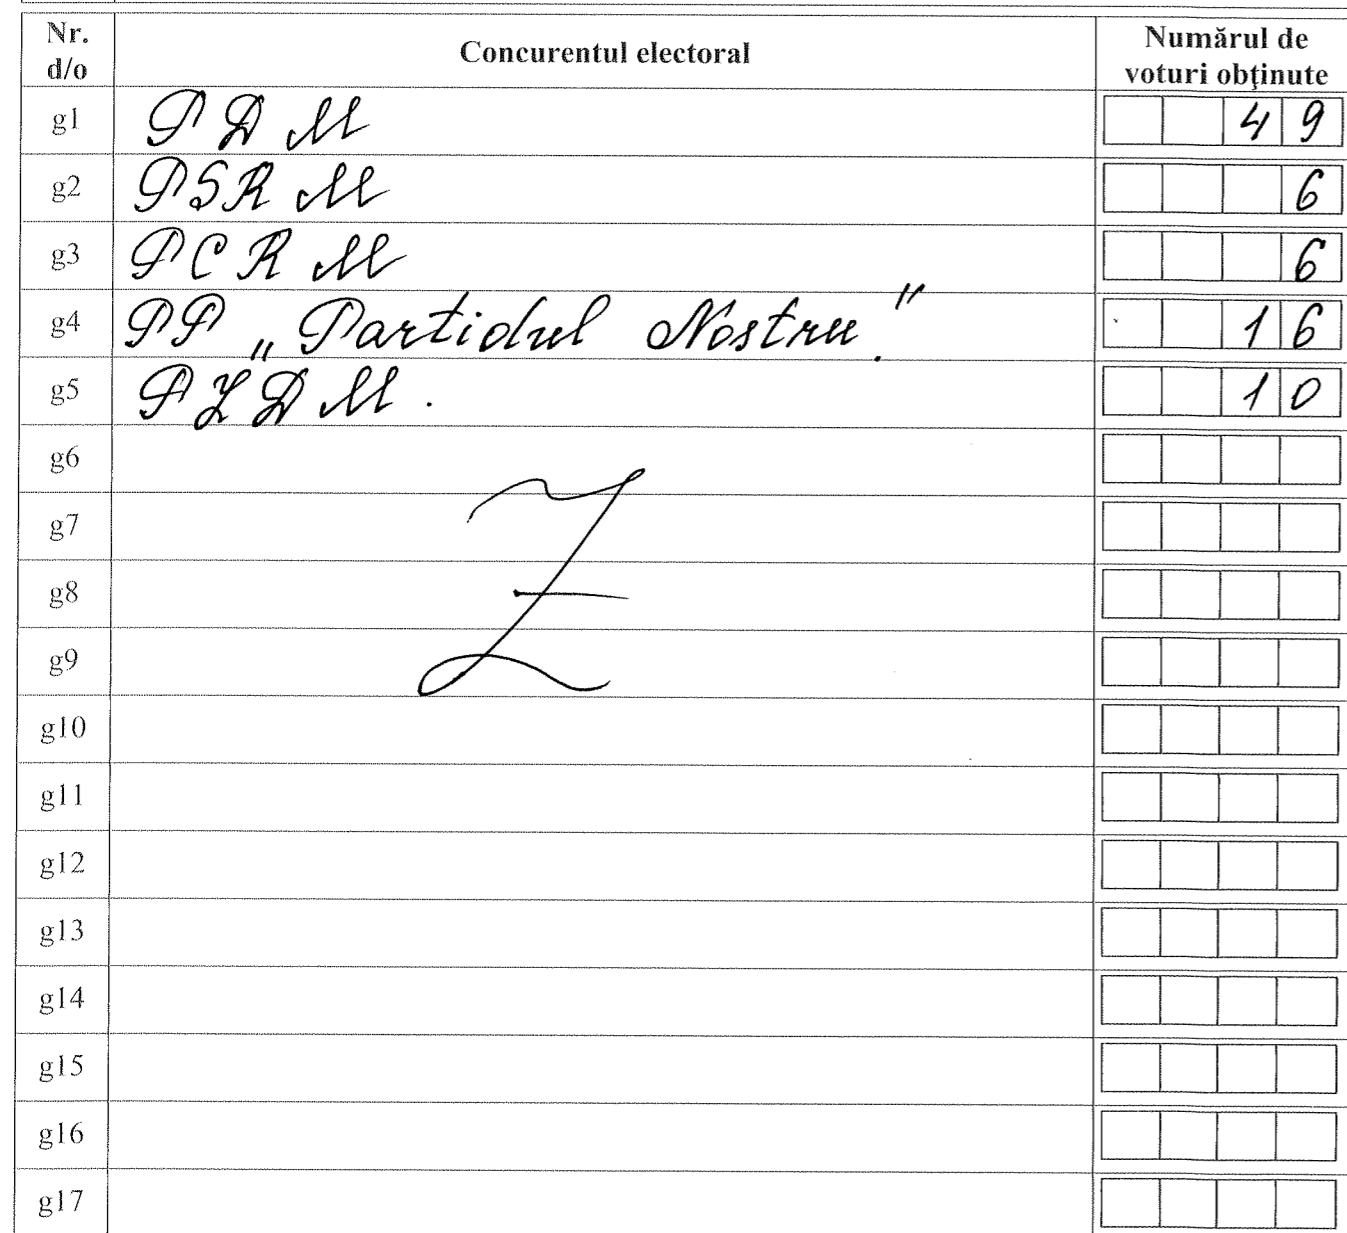 Nr. d/o Concurentul electoral Numărul de voturi obţinute
g1 PDM 49
g2 PSRM 6
g3 PCRM 6
g4 PP „Partidul Nostru." 16
g5 PLDM. 10
g6
g7
g8
g9
g10
g11
g12
g13
g14
g15
g16
g17